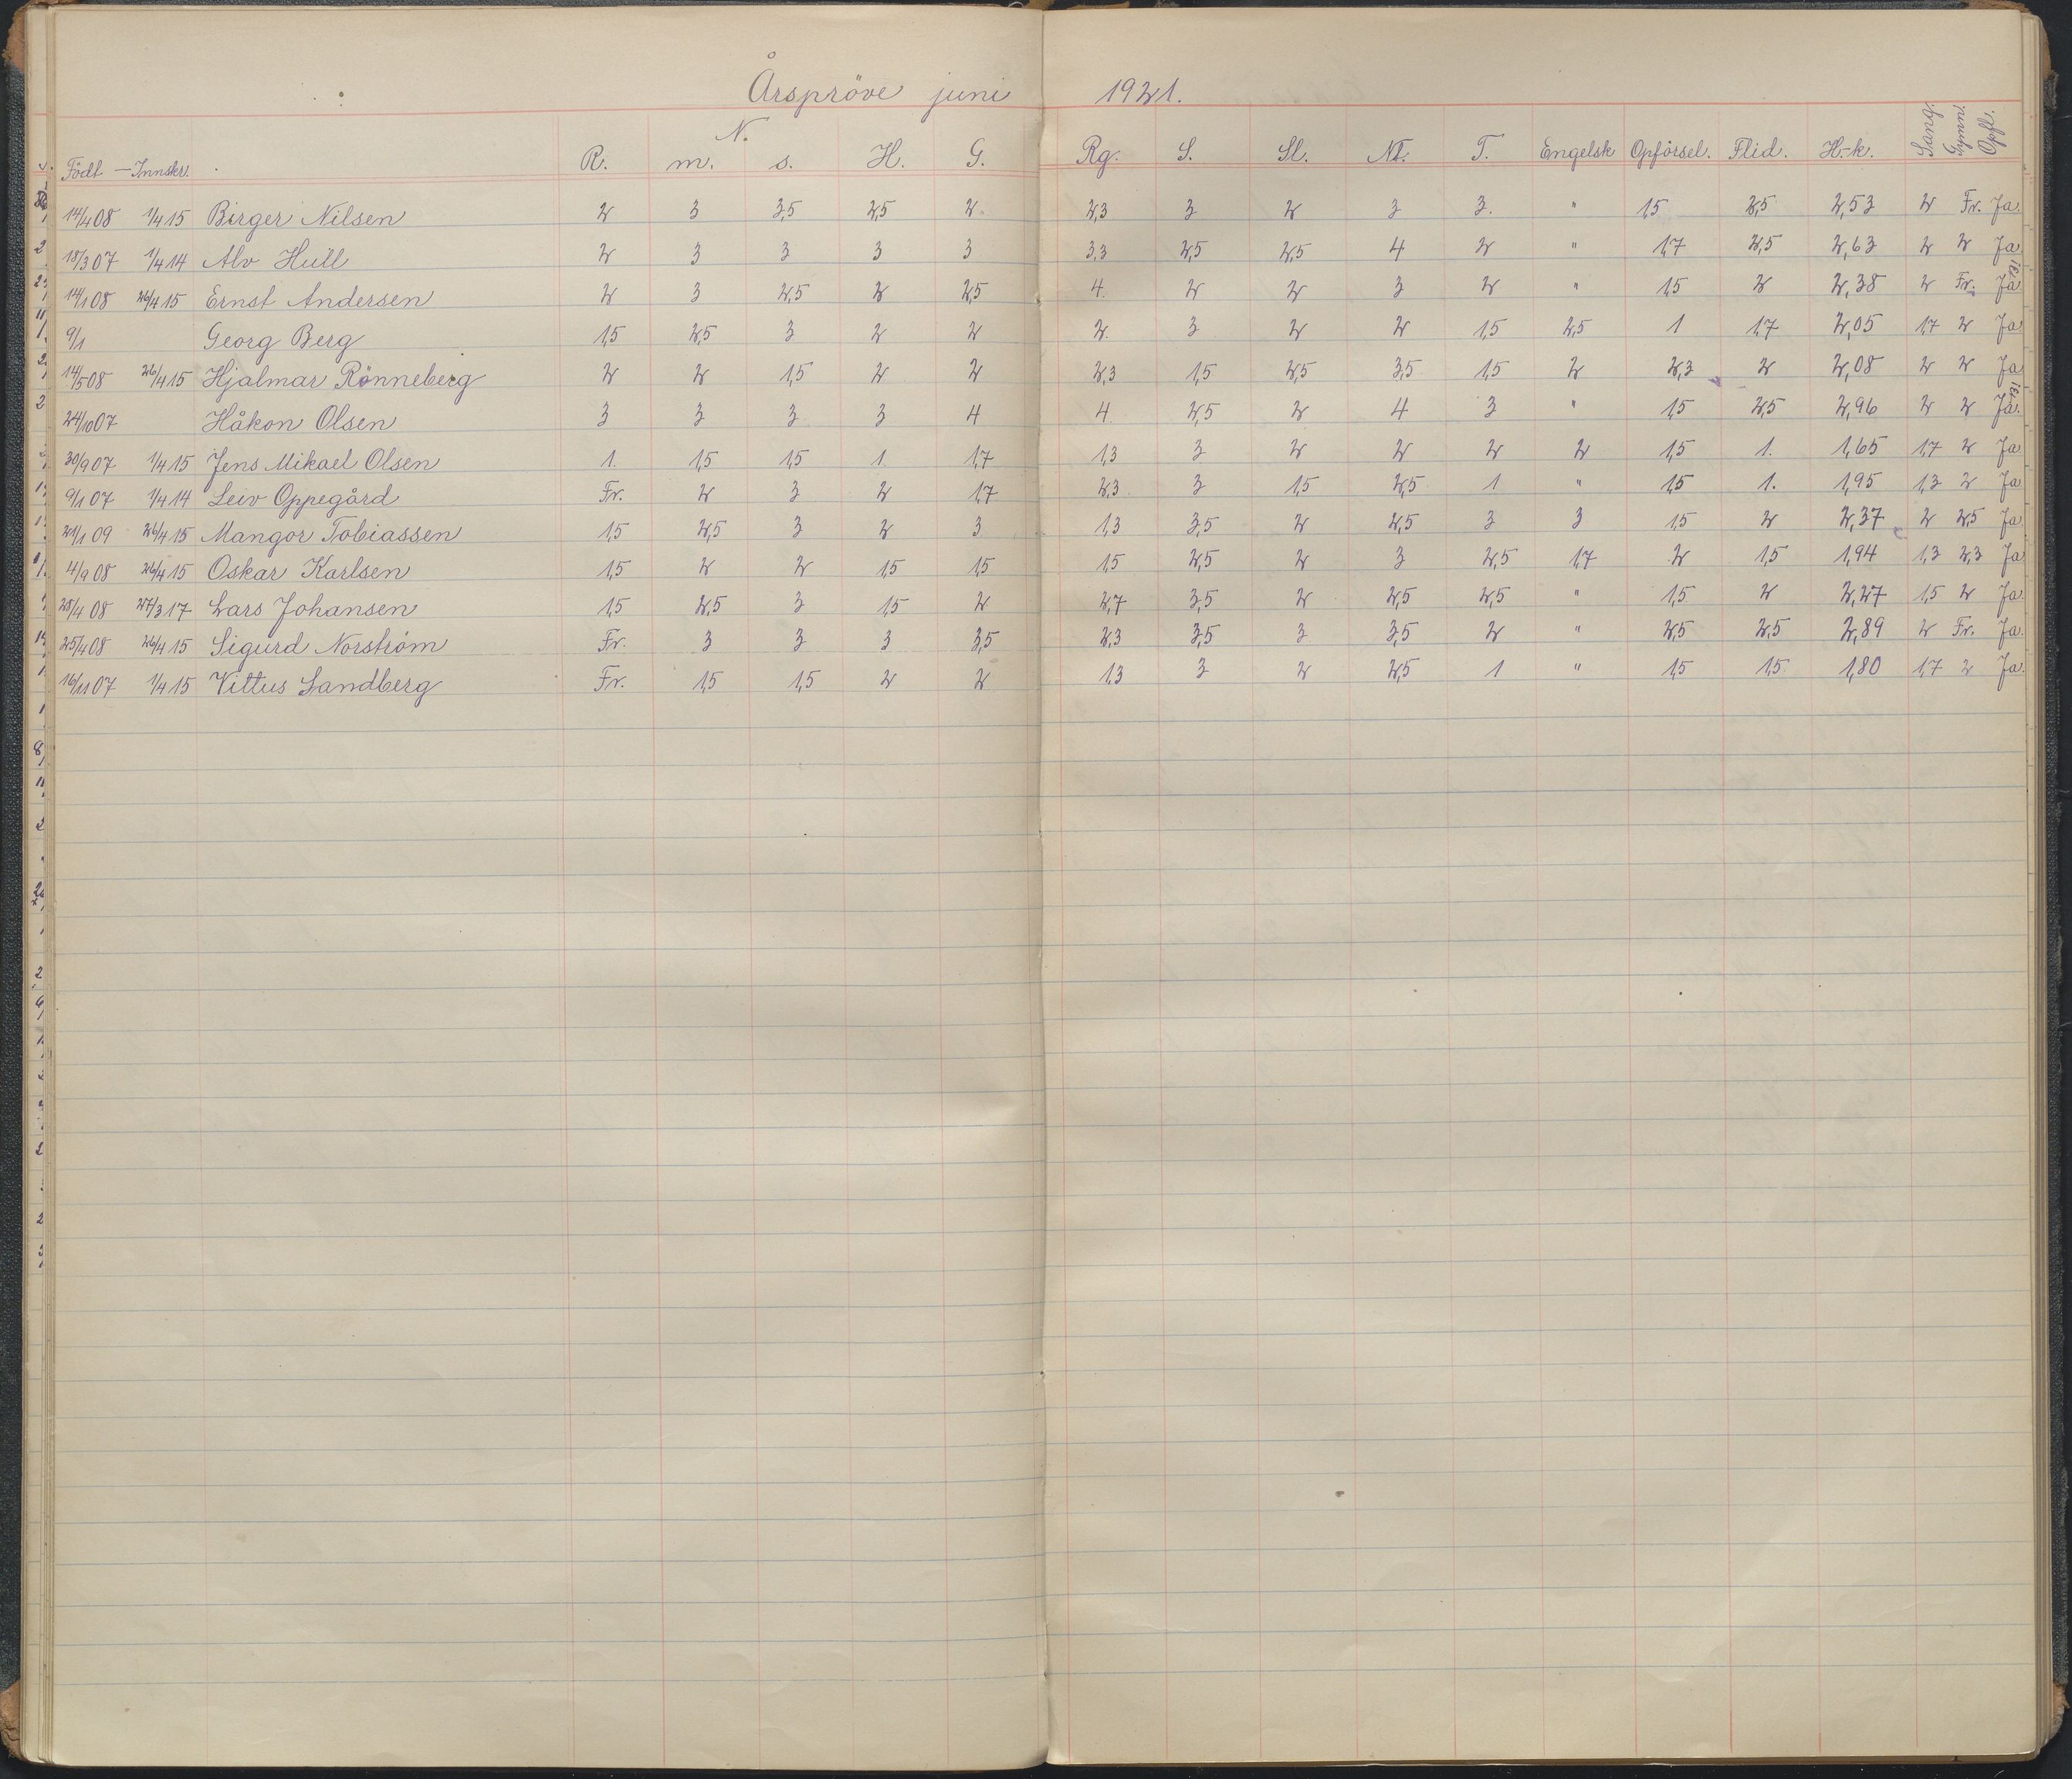 Årspröve juni 1921.
Födt — Innskr. R. N. m. s. H. G. Rg. S. Sl. Nt. T. Engelsk Opförsel. Flid. H.-k. Sang. Gymn. Opfl.
14/4 08 1/4 15 Birger Nilsen 2 3 3,5 2,5 2. 2,3 3 2 3 3. " 1,5 2,5 2,53 2 Fr. Ja.
18/3 07 1/4 14 Alv Hull 2 3 3 3 3 3,3 2,5 2,5 4 2 " 1,7 2,5 2,63 2 2 Ja
14/1 08 26/4 15 Ernst Andersen 2 3 2,5 2 2,5 4. 2 2 3 2 " 1,5 2 2,38 2 Fr. Ja
9/1 Georg Berg 1,5 2,5 3 2 2 2. 3 2 2 1,5 2,5 1 1,7 2,05 1,7 2 Ja
14/5 08 26/4 15 Hjalmar Rönneberg 2 2 1,5 2 2 2,3 1,5 2,5 3,5 1,5 2 2,3 2 2,08 2 2 Ja
24/10 07 Håkon Olsen 3 3 3 3 4 4. 2,5 2 4 3 " 1,5 2,5 2,96 2 2 Ja.
30/9 07 1/4 15 Jens Mikael Olsen 1. 1,5 1,5 1. 1,7 1,3 3 2 2 2 2 1,5 1. 1,65 1,7 2 Ja
9/1 07 1/4 14 Leiv Oppegård Fr. 2 3 2 1,7 2,3 3 1,5 2,5 1 " 1,5 1. 1,95 1,3 2 Ja
21/1 09 26/4 15 Mangor Tobiassen 1,5 2,5 3 2 3 1,3 3,5 2 2,5 3 3 1,5 2 2,37 2 2,5 Ja
4/9 08 26/4 15 Oskar Karlsen 1,5 2 2 1,5 1,5 1,5 2,5 2 3 2,5 1,7 2 1,5 1,94 1,3 2,3 Ja
28/4 08 27/3 17 Lars Johansen 1,5 2,5 3 1,5 2 2,7 3,5 2 2,5 2,5 " 1,5 2 2,27 1,5 2 Ja
25/4 08 26/4 15 Sigurd Norström Fr. 3 3 3 3,5 2,3 3,5 3 3,5 2 " 2,5 2,5 2,89 2 Fr. Ja.
16/11 07 1/4 15 Vittus Sandberg Fr. 1,5 1,5 2 2 1,3 3 2 2,5 1 " 1,5 1,5 1,80 1,7 2 Ja.